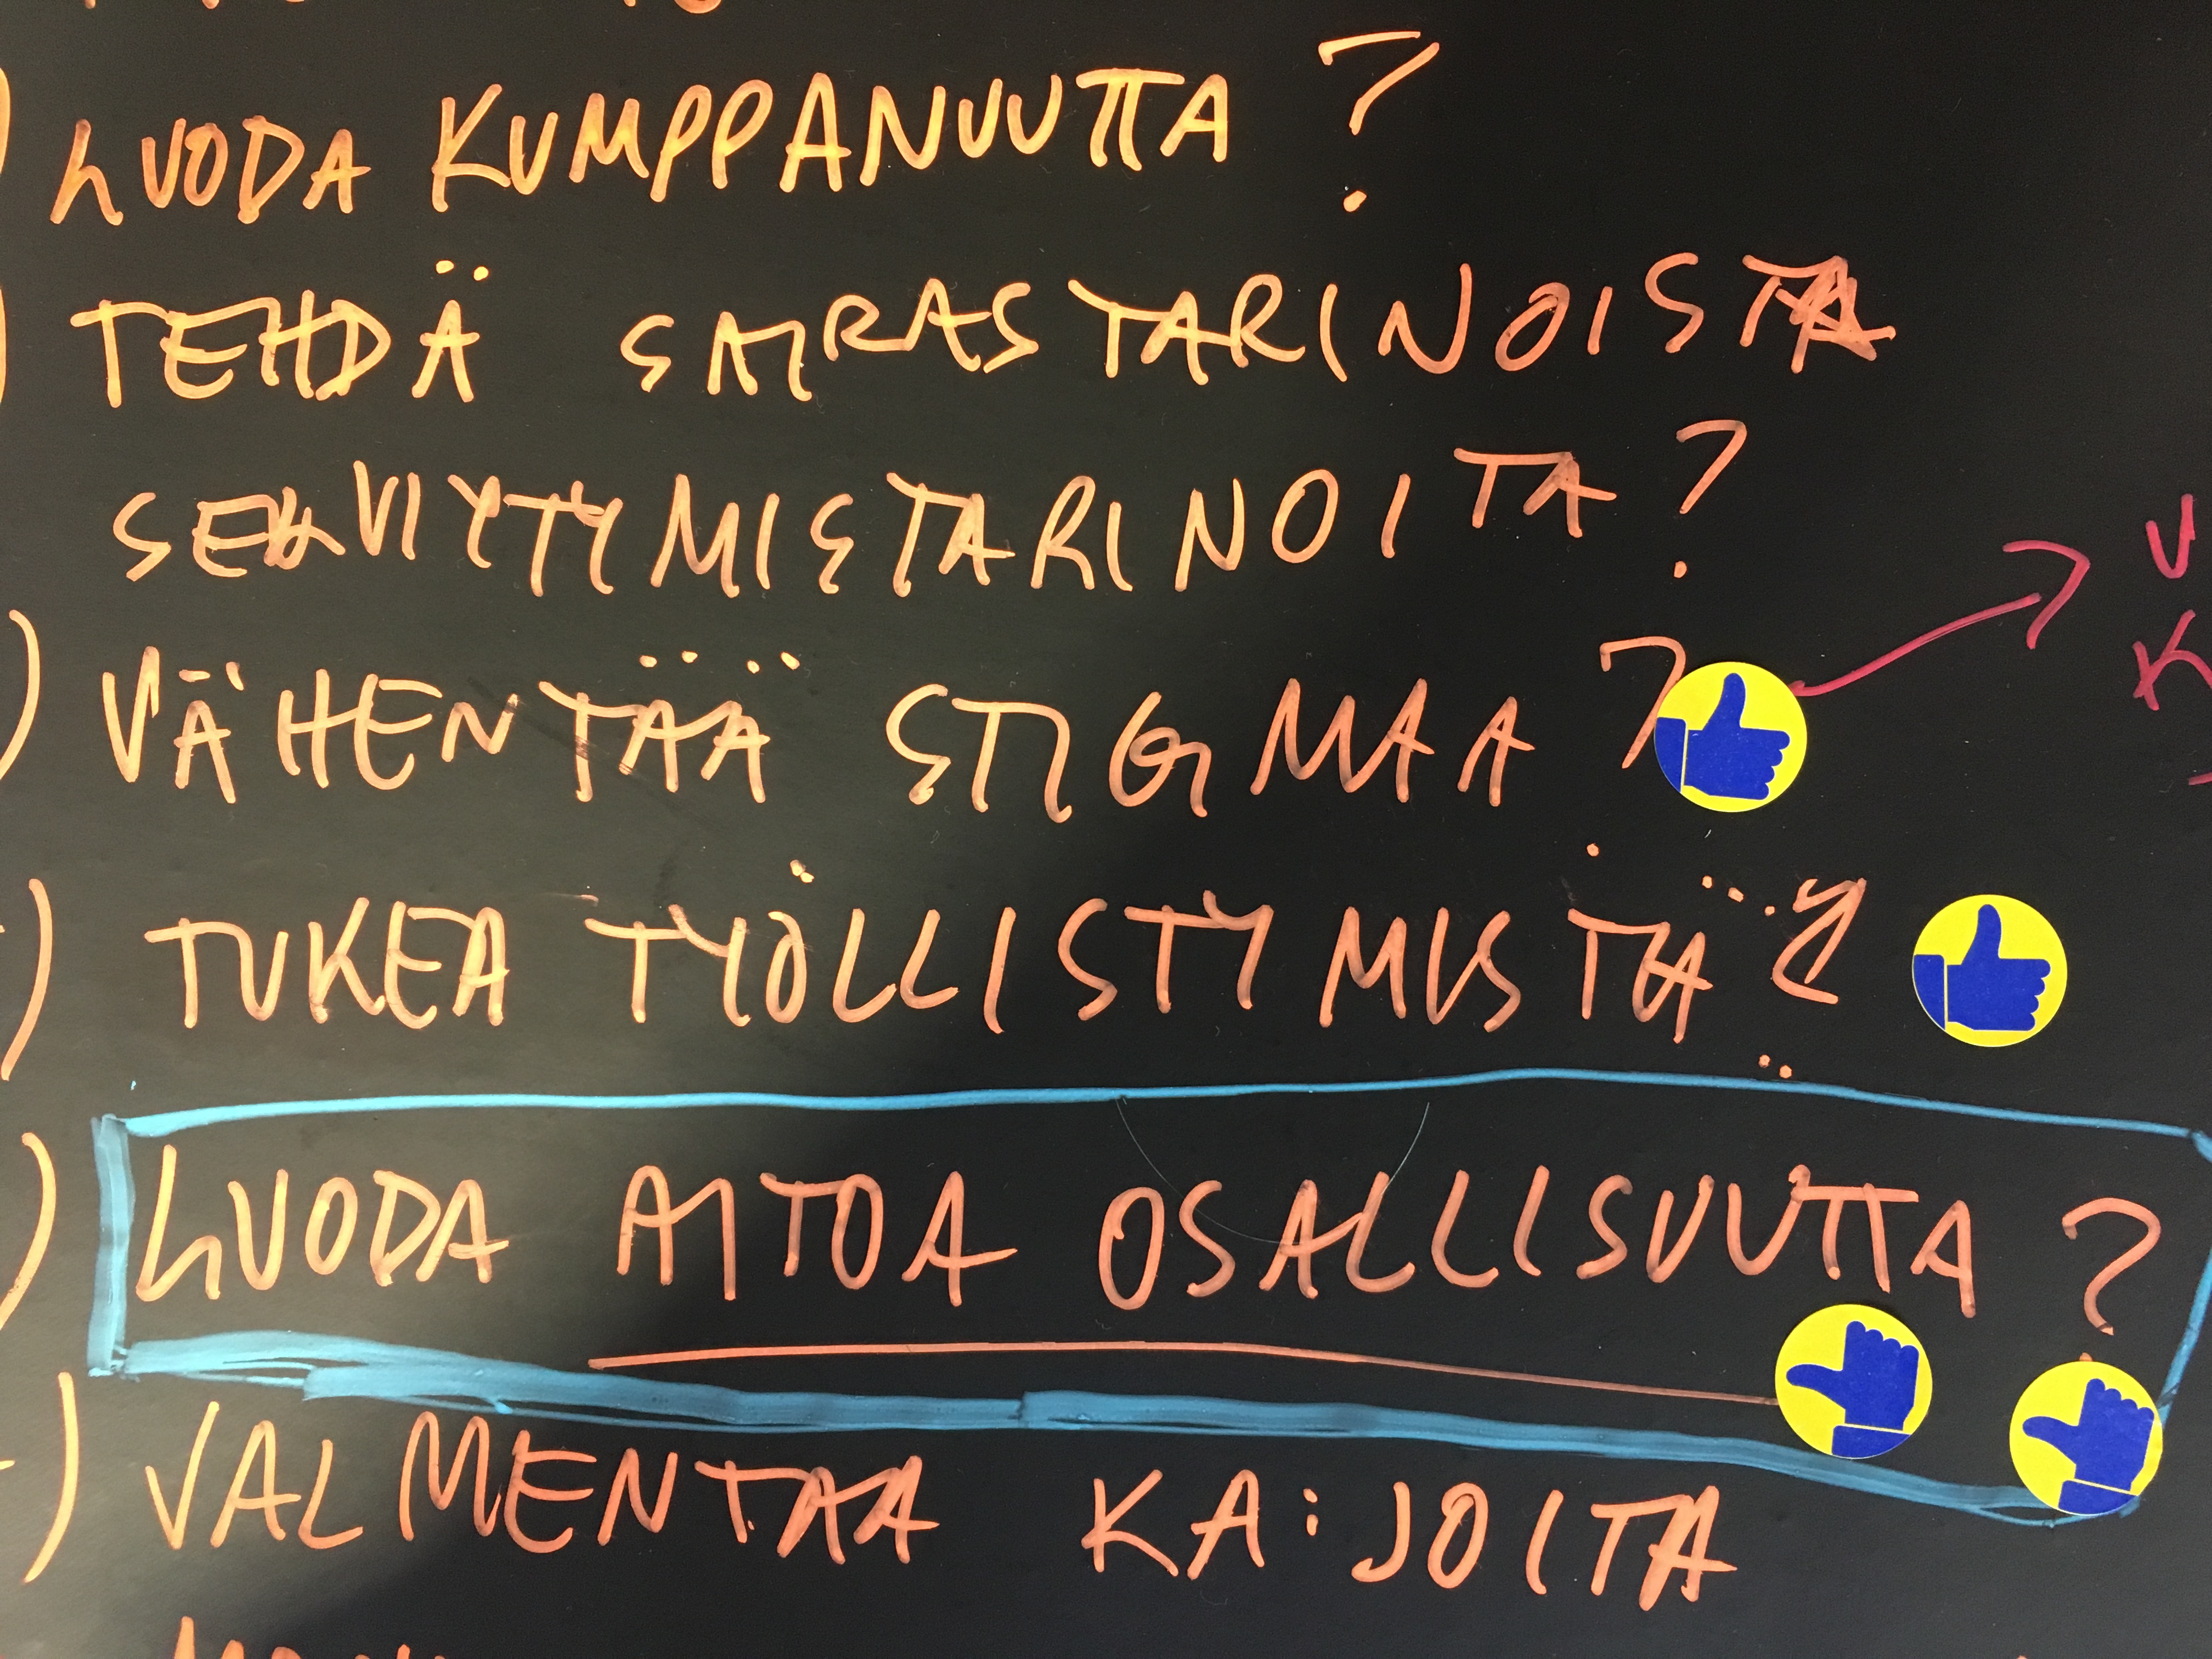 ) LUODA KUMPPANUUTTA ?
) TEHDÄ SAIRASTARINOISTA
SELVIYTYMISTARINOITA ?
) VÄHENTÄÄ STIGMAA ?
) TUKEA TYÖLLISTYMISTÄ ?
) LUODA AITOA OSALLISUUTTA ?
) VALMENTAA KA:JOITA